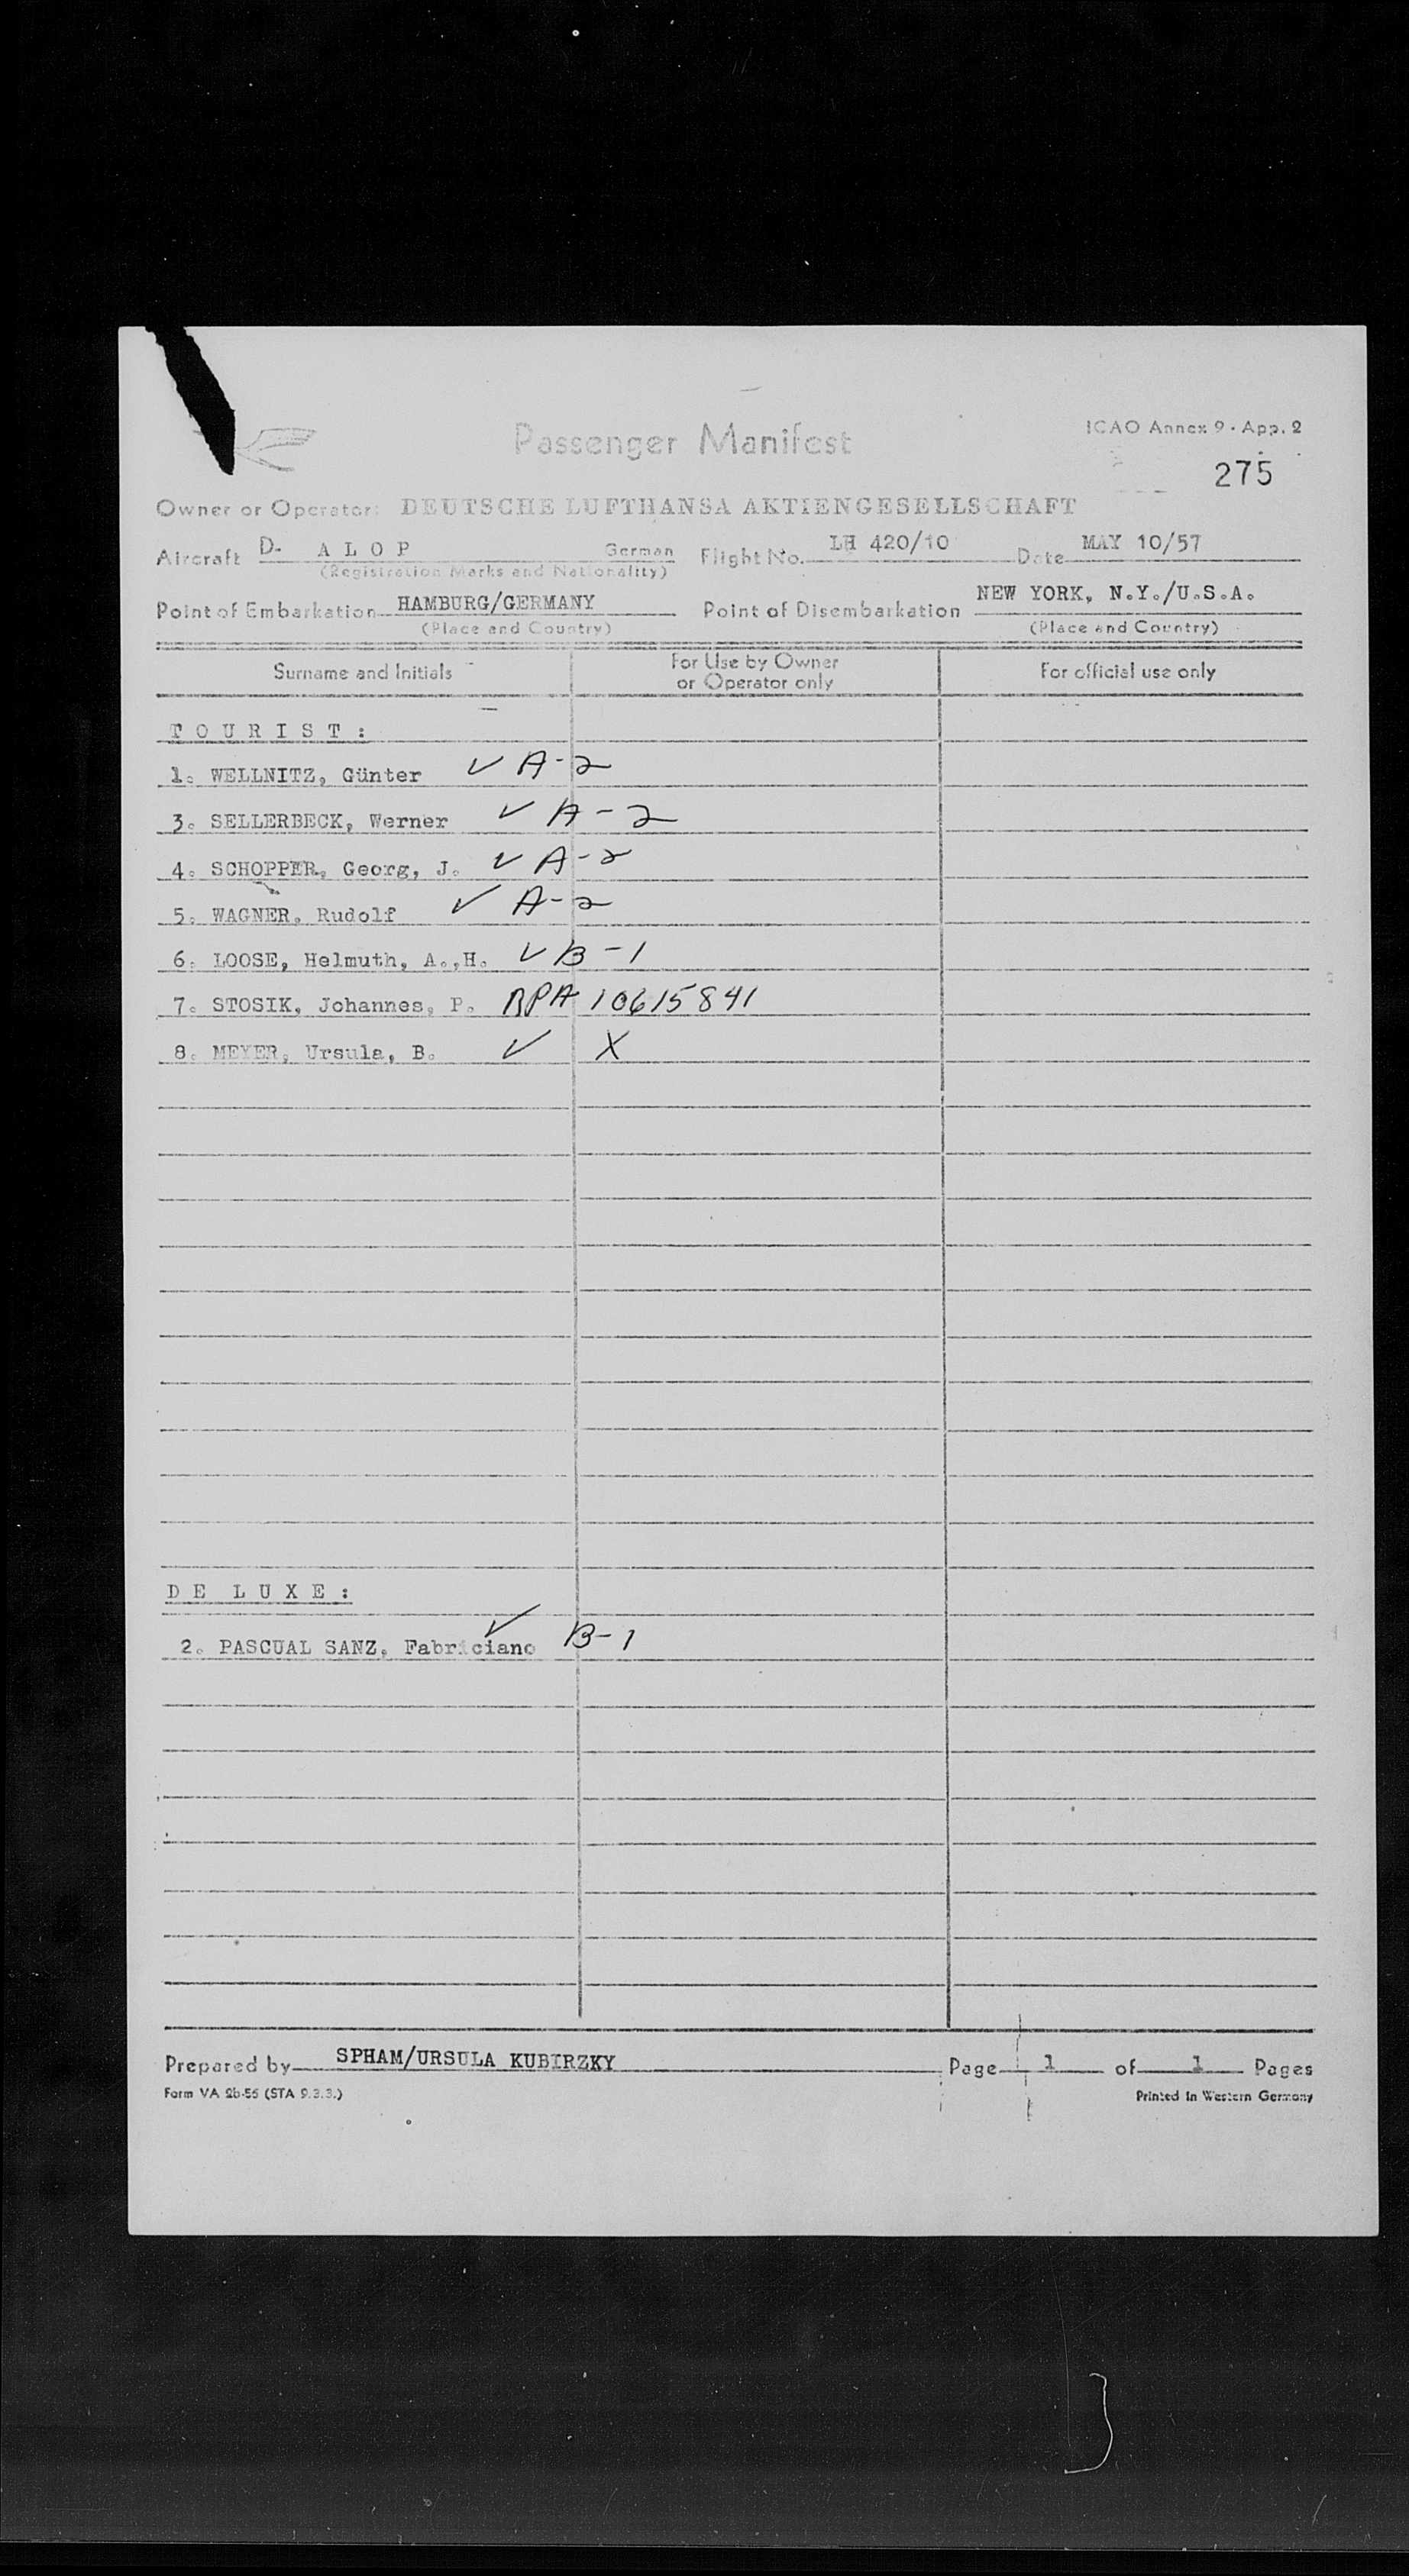 Passenger Manifest
ICAO Annex 9 - App. 2
275
Owner or Operator: DEUTSCHE LUFTHANSA AKTIENGESELLSCHAFT
Aircraft D- A L O P German Flight No. LH 420/10 Date MAY 10/57
(Registration Marks and Nationality)
Point of Embarkation HAMBURG/GERMANY Point of Disembarkation NEW YORK, N.Y./U.S.A.
(Place and Country) (Place and Country)
Surname and Initials For Use by Owner or Operator only For official use only
T O U R I S T :
1. WELLNITZ, Günter ✓ A-2
3. SELLERBECK, Werner ✓ A-2
4. SCHOPPER, Georg, J. ✓ A-2
5. WAGNER, Rudolf ✓ A-2
6. LOOSE, Helmuth, A.,H. ✓ B-1
7. STOSIK, Johannes, P. RPA 10615841
8. MEYER, Ursula, B. ✓ X
D E L U X E :
2. PASCUAL SANZ, Fabriciano ✓ B-1
Prepared by SPHAM/URSULA KUBIRZKY Page 1 of 1 Pages
Form VA 2b-56 (STA 9.3.3.) Printed in Western Germany